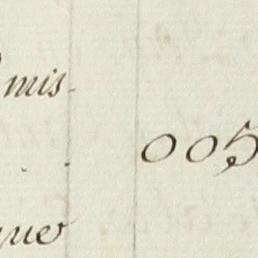 mis
005
que